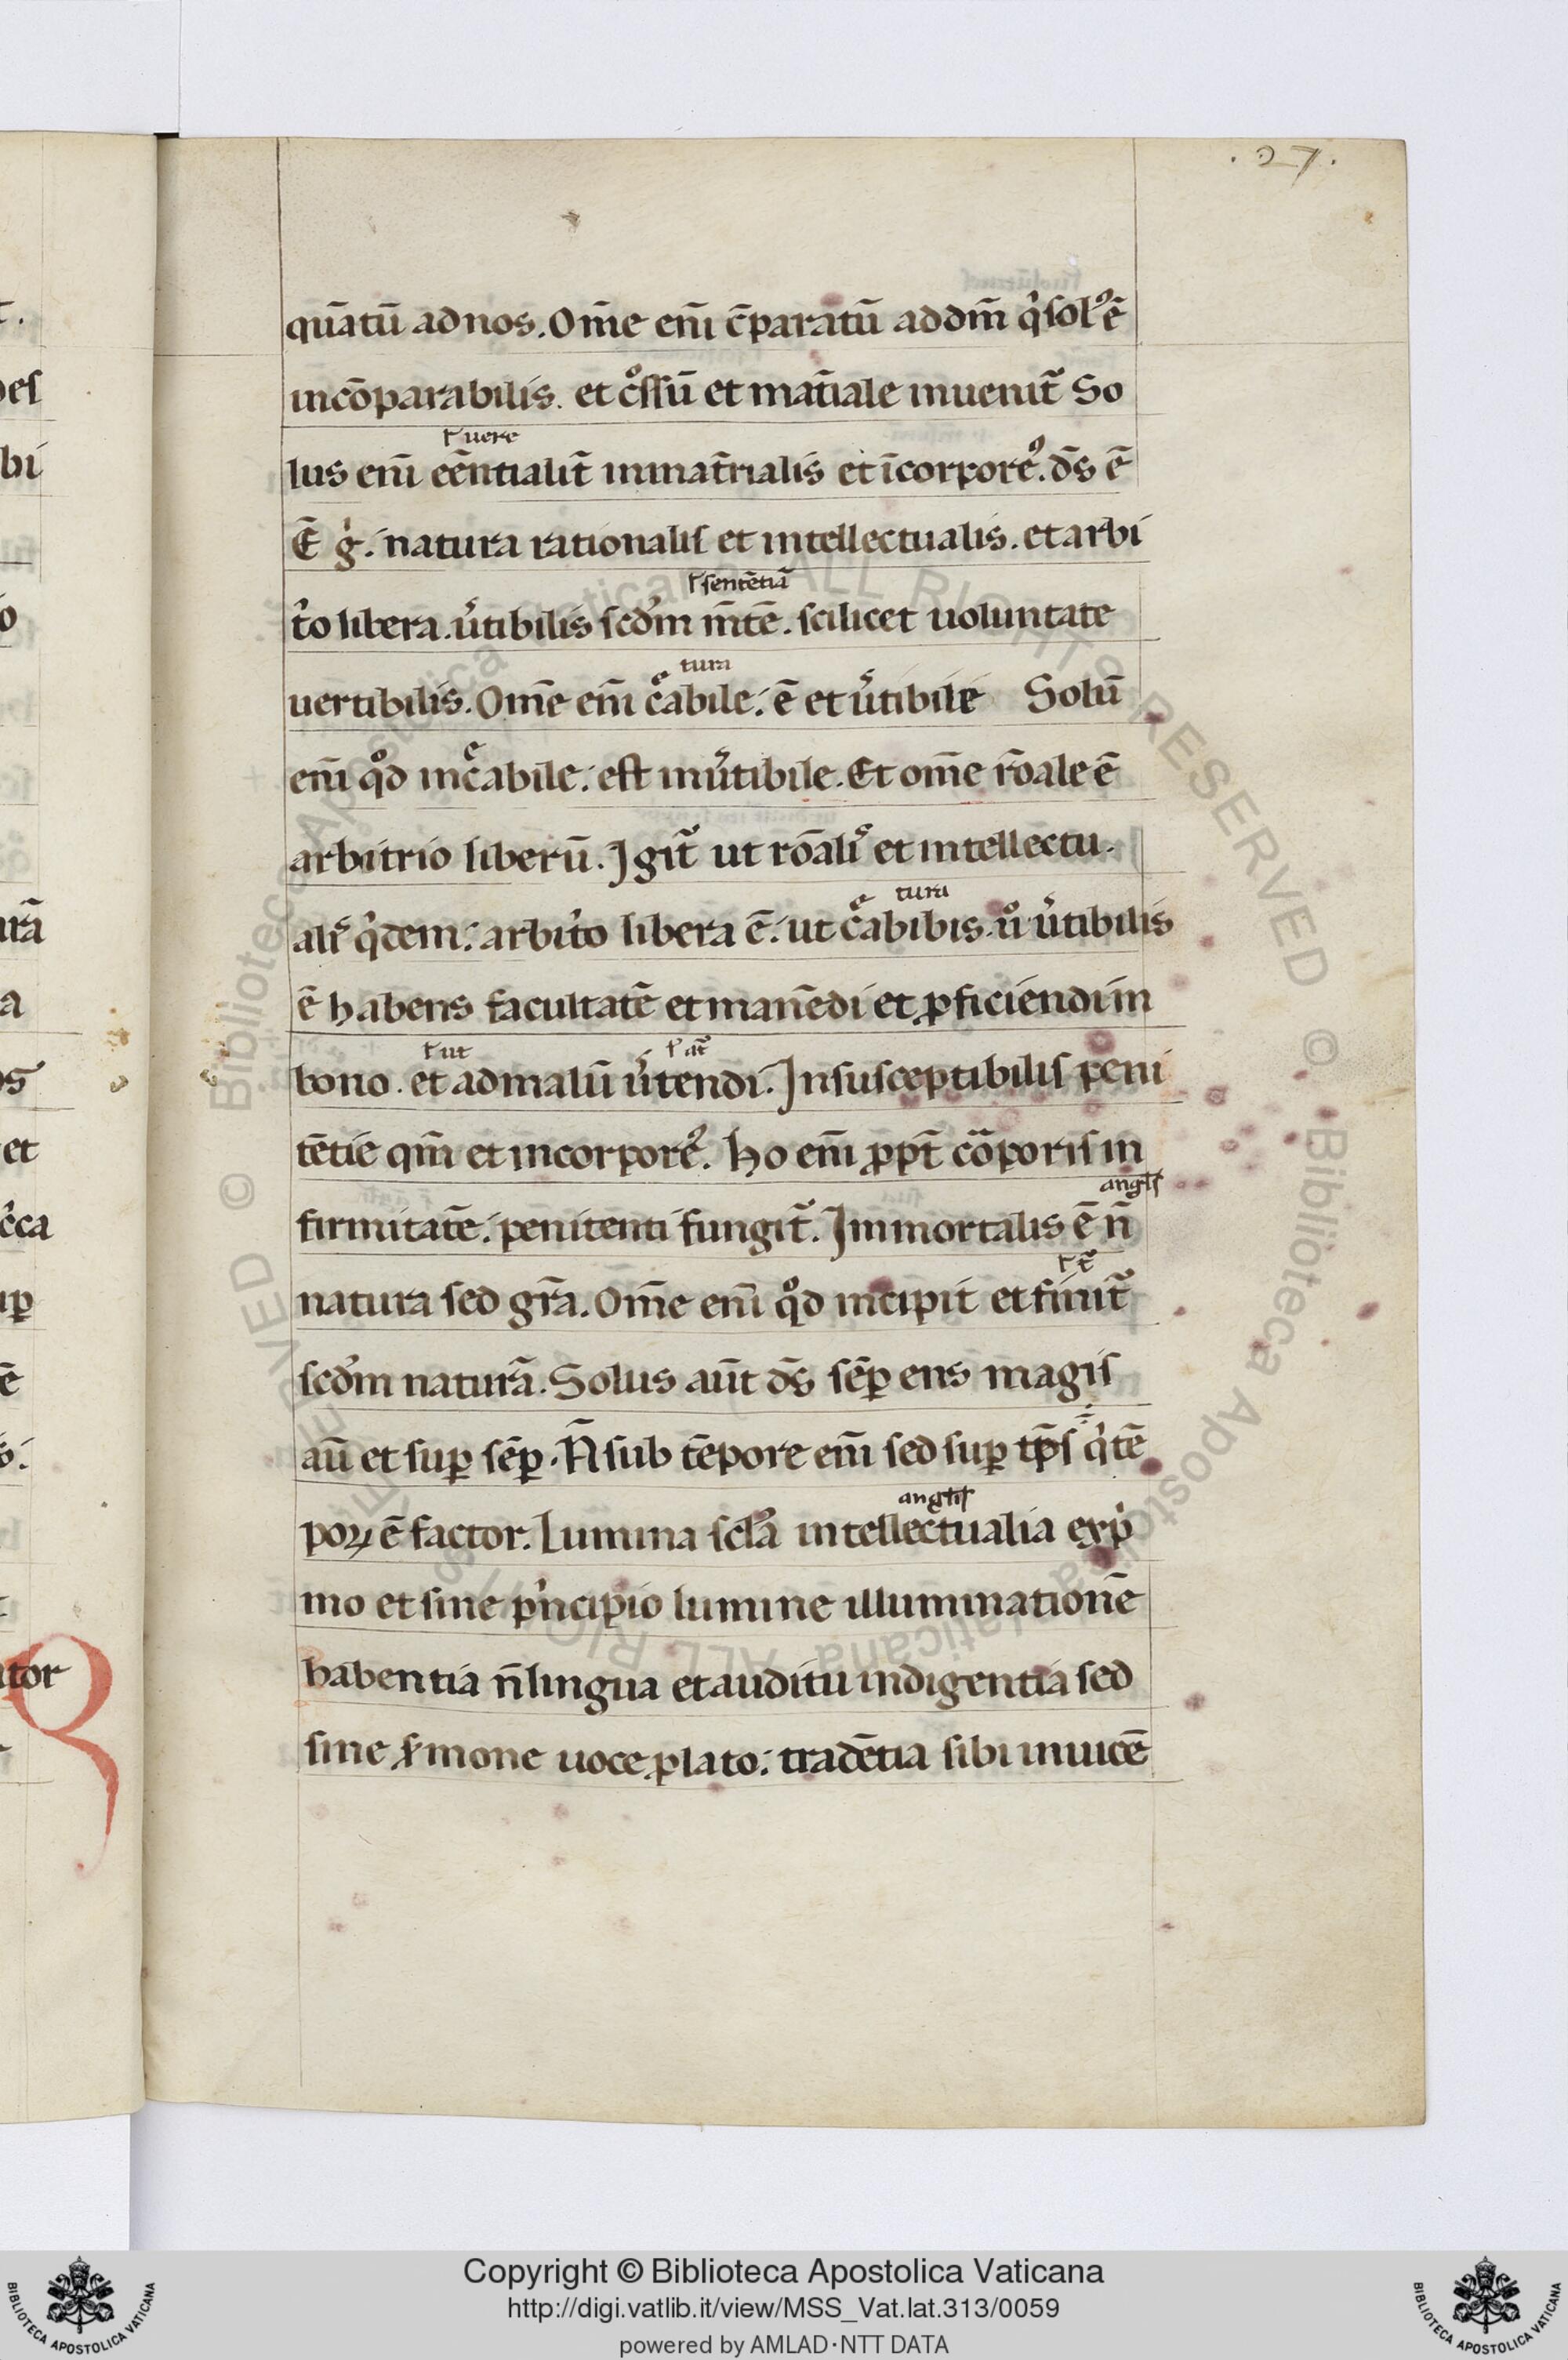 .27.
quātū ad nos. Om̄e eni̅ c̄paratū ad dm̅ qͥ solꝰ ē
incōparabilis. et cͦssū et mat̄iale inuenit᷑ So
ł uere
lus eni̅ eēntialit̄ inmat̄rialis et īcorporeꝰ. ds̄ ē
Ē gͥ. natura rationalis et intellectualis. et arbi
ł sentētiā
t͛o libera. u͛tibilis scd̓m m̄tē. scilicet uoluntate
tura
uertibilis. Om̄e eni̅ c͛abile. ē et u͛tibile Solū
eni̅ qͦd inc͛abile. est inu͛tibile. Et om̄e r̄oale ē
arbitrio liberū. Igit᷑ ut rōalis et intellectu
tura
alis qͥdem. arbit͛o libera ē. ut c͛abibis. uͦ u͛tibilis
ē habens facultatē et manēdi et ꝓficiendi in
ł ut ł at᷑
bono. et ad malū u͛tendi. Insusceptibilis peni
tētie qm̅ et incorporeꝰ. Ho eni̅ ꝓpt̄ cōporis in
angls
firmitatē. penitenti fungit᷑. Immortalis ē n̄
natura sed gr̄a. Om̄e eni̅ qͦd incipit et finit᷑
scd̓m naturā. Solus aūt ds̄ sēꝑ ens magis
aū et suꝑ sēꝑ. N̄ sub tēpore eni̅ sed suꝑ tp̄s qͥ tē
angls
poꝝ ē factor. Lumina scd̓a intellectualia ex pͥ
mo et sine pͥncipio lumine illuminationē
habentia n̄ lingua et auditu indigentia sed
sine s͛mone uoce ꝓlato. tradētia sibi inuicē
Copyright © Biblioteca Apostolica Vaticana
http://digi.vatlib.it/view/MSS_Vat.lat.313/0059
powered by AMLAD·NTT DATA
BIBLIOTECA APOSTOLICA VATICANA
BIBLIOTECA APOSTOLICA VATICANA